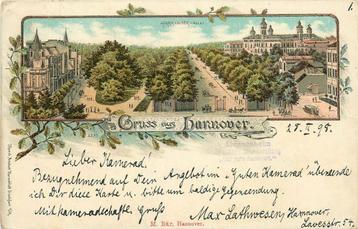 1.
Gruss aus Hannover.
25. II. 98.
Lieber Kamerad.
Bezugnehmend auf Dein Angebot in „Guten Kamerad" übersende
ich Dir diese Karte u. bitte um baldige Gegensendung.
Mit kameradschaftl. Gruß Max Lathwesen, Hannover,
Lavesstr. 54.
M. Bär, Hannover.